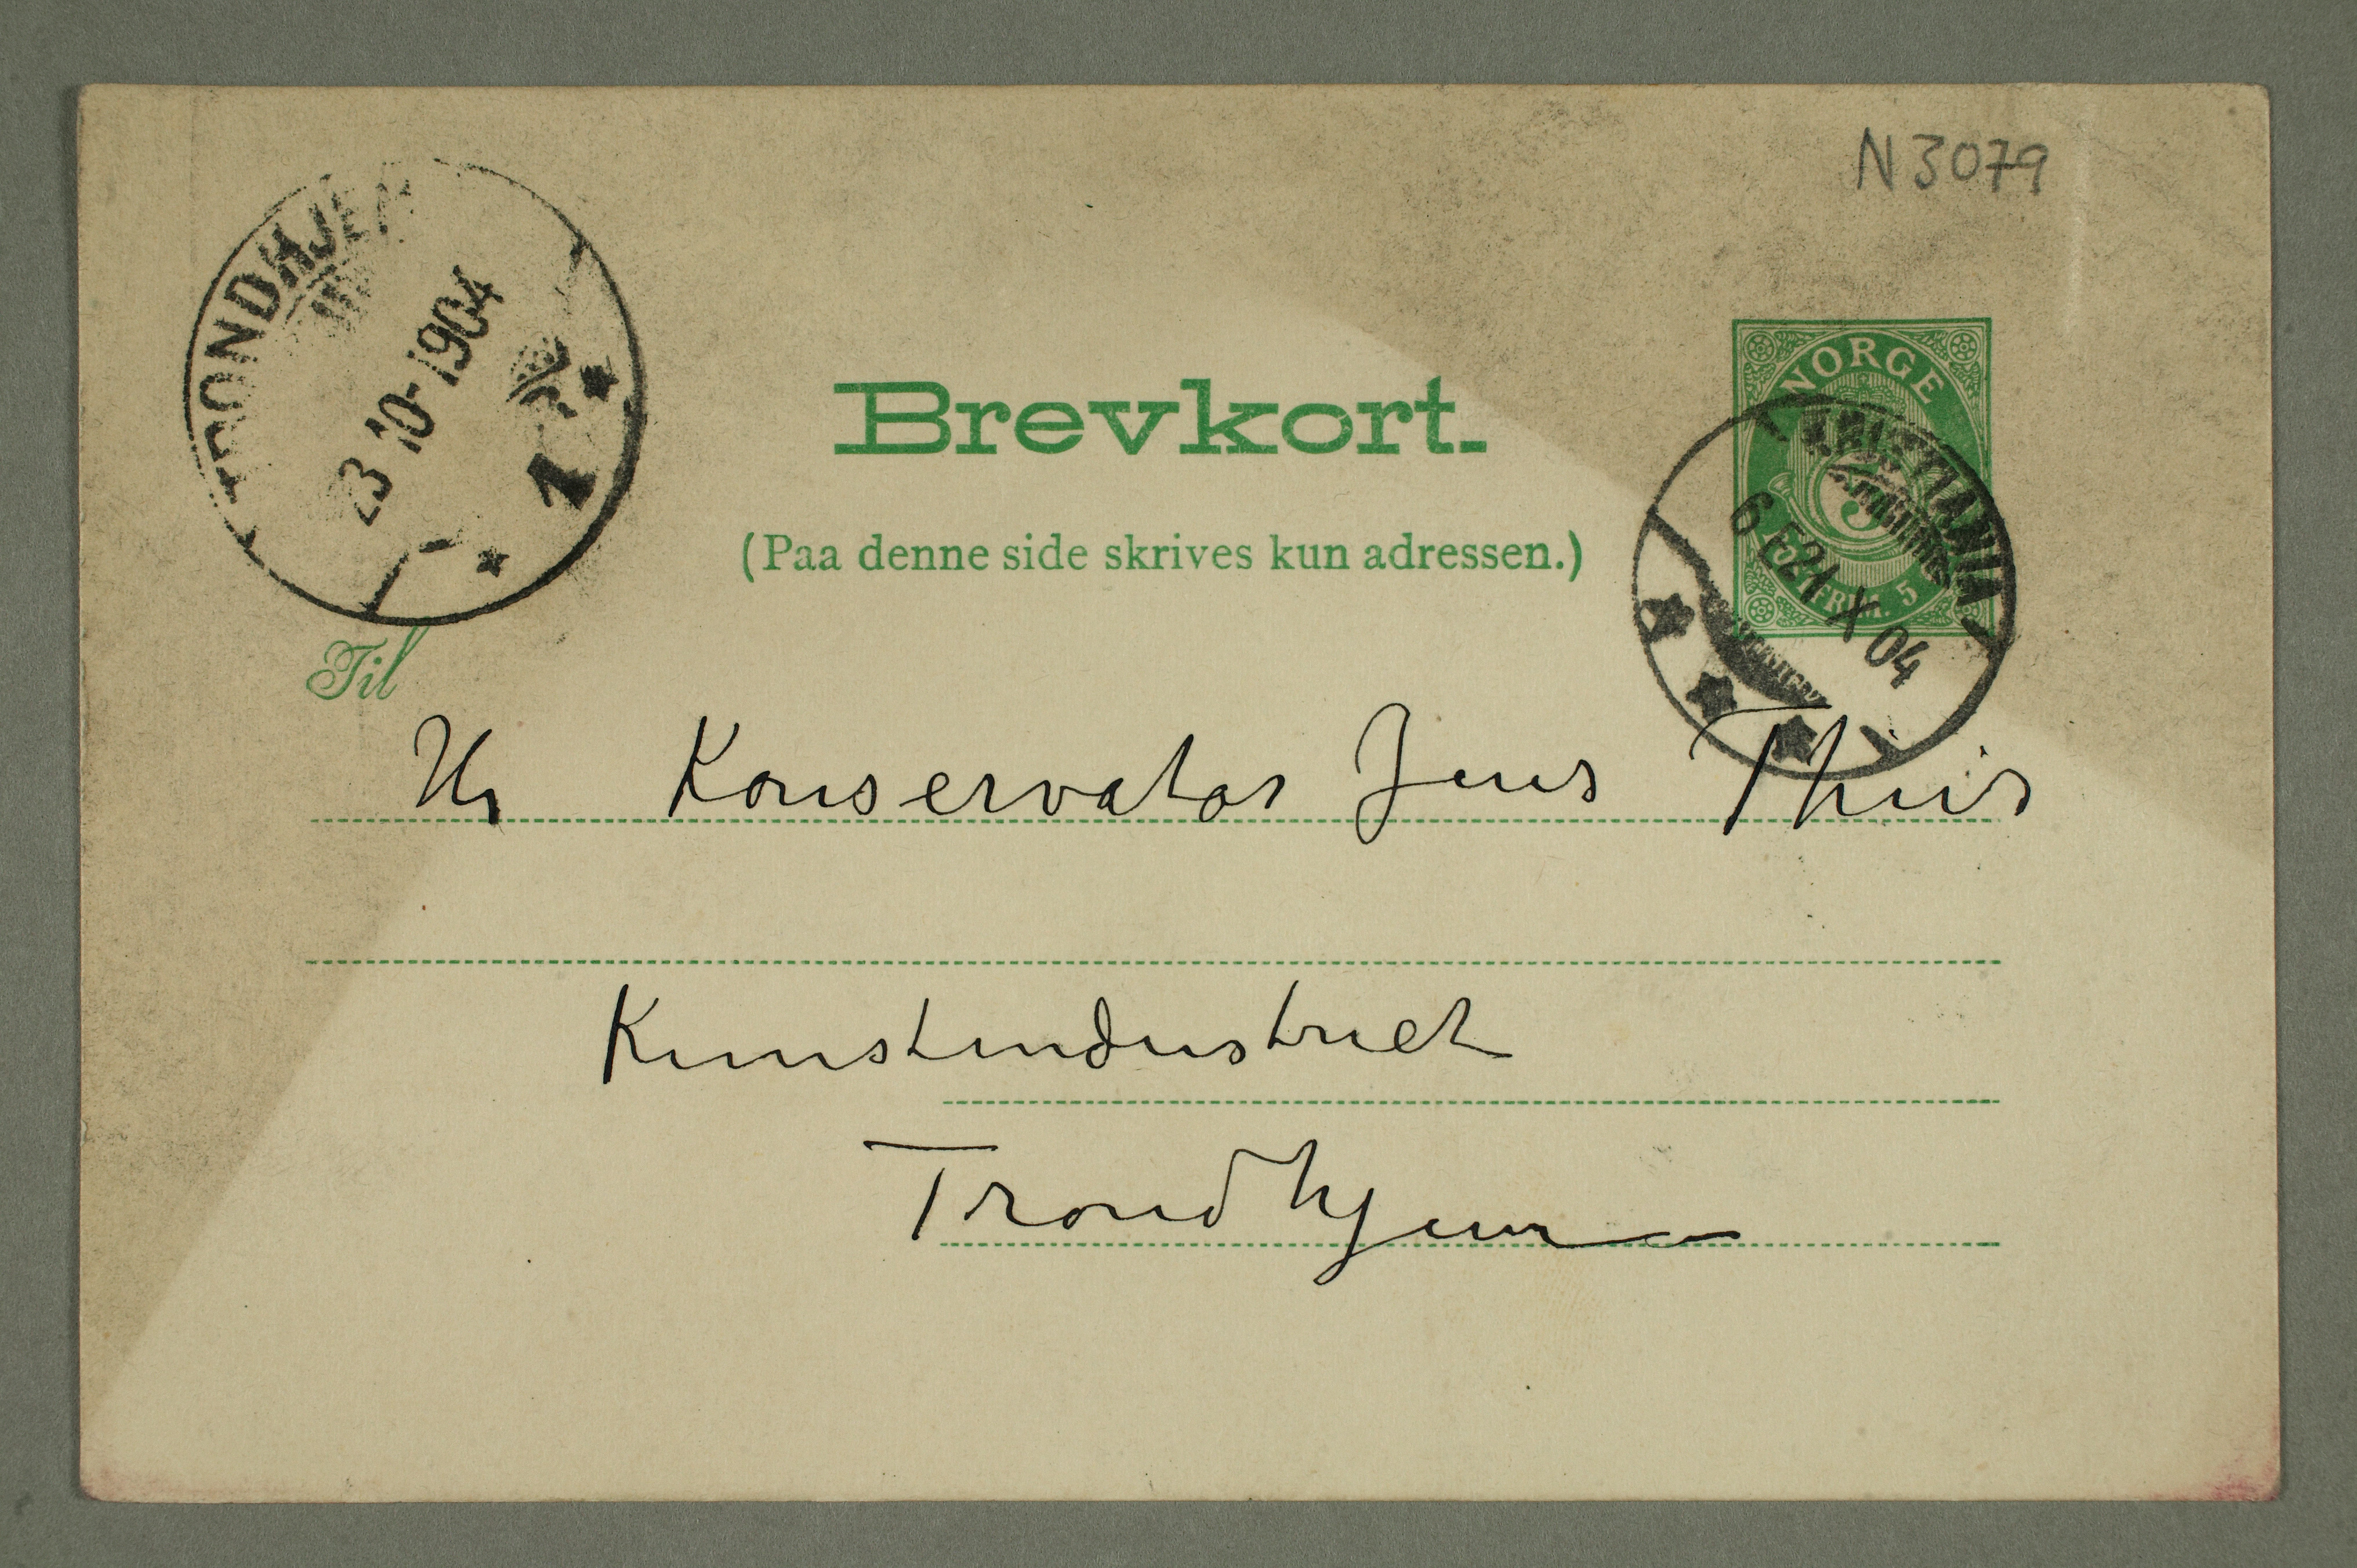 N 3079
TRONDHJEM
23 10-1904
1
NORGE
5
FRIM. 5
KRISTIANIA
6 E 21 X 04
Brevkort.
(Paa denne side skrives kun adressen.)
Til
Hr Konservator Jens Thiis
Kunstindustriet
Trondhjem